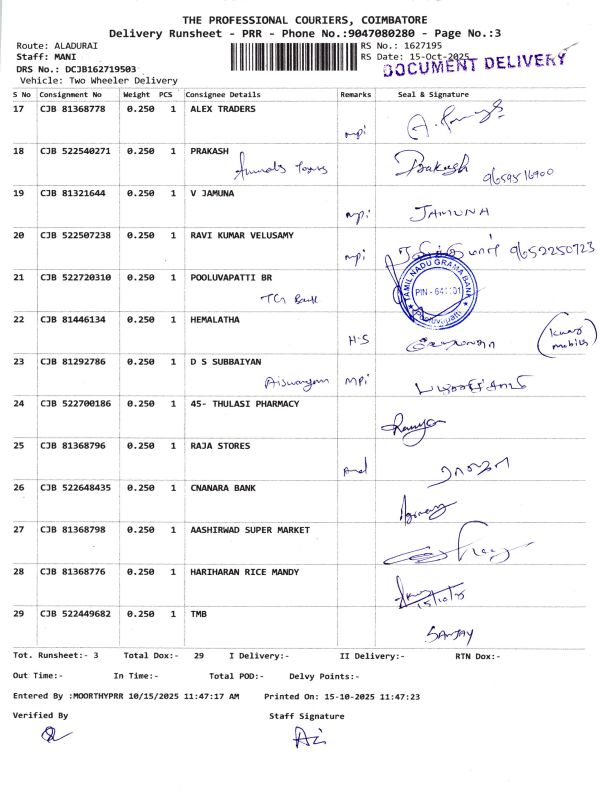 THE PROFESSIONAL COURIERS, COIMBATORE
Delivery Runsheet - PRR - Phone No.:9047080280 - Page No.:3
Route: ALADURAI
RS No.: 1627195
Staff: MANI
RS Date: 15-Oct-2025
DRS No.: DCJB162719503
DOCUMENT DELIVERY
Vehicle: Two Wheeler Delivery
S No Consignment No Weight PCS Consignee Details Remarks Seal & Signature
17 CJB 81368778 0.250 1 ALEX TRADERS
mpi
18 CJB 522540271 0.250 1 PRAKASH
Prakash
19 CJB 81321644 0.250 1 V JAMUNA
mpi JAMUNA
20 CJB 522507238 0.250 1 RAVI KUMAR VELUSAMY
mpi 9652250723
21 CJB 522720310 0.250 1 POOLUVAPATTI BR
TAMIL NADU GRAMA BANK
22 CJB 81446134 0.250 1 HEMALATHA
H.S
23 CJB 81292786 0.250 1 D S SUBBAIYAN
mpi
24 CJB 522700186 0.250 1 45- THULASI PHARMACY
25 CJB 81368796 0.250 1 RAJA STORES
26 CJB 522648435 0.250 1 CNANARA BANK
27 CJB 81368798 0.250 1 AASHIRWAD SUPER MARKET
28 CJB 81368776 0.250 1 HARIHARAN RICE MANDY
15/10/25
29 CJB 522449682 0.250 1 TMB
SANJAY
Tot. Runsheet:- 3 Total Dox:- 29 I Delivery:- II Delivery:- RTN Dox:-
Out Time:- In Time:- Total POD:- Delvy Points:-
Entered By :MOORTHYPRR 10/15/2025 11:47:17 AM Printed On: 15-10-2025 11:47:23
Verified By Staff Signature